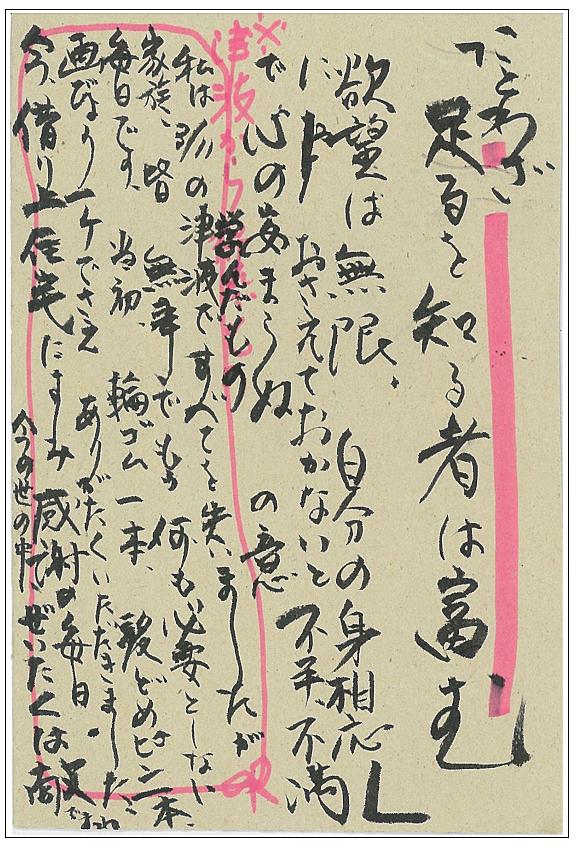 「ことわざ
足るを知る者は富む
欲望は無限、自分の身相応
に おさえておかないと不平、不満
で心の安まらぬ の意」
※
津波から学んだもの
私は3/11の津波ですべてを失いましたが
家族、皆無事でもう何も必要としない
毎日です、当初、輪ゴム一本、髪どめピン二本、
画びょう一ケでさえありがたくいただきました。
今、借り上住宅にすみ感謝の毎日。
今の世の中ぜいたくは敵ですね